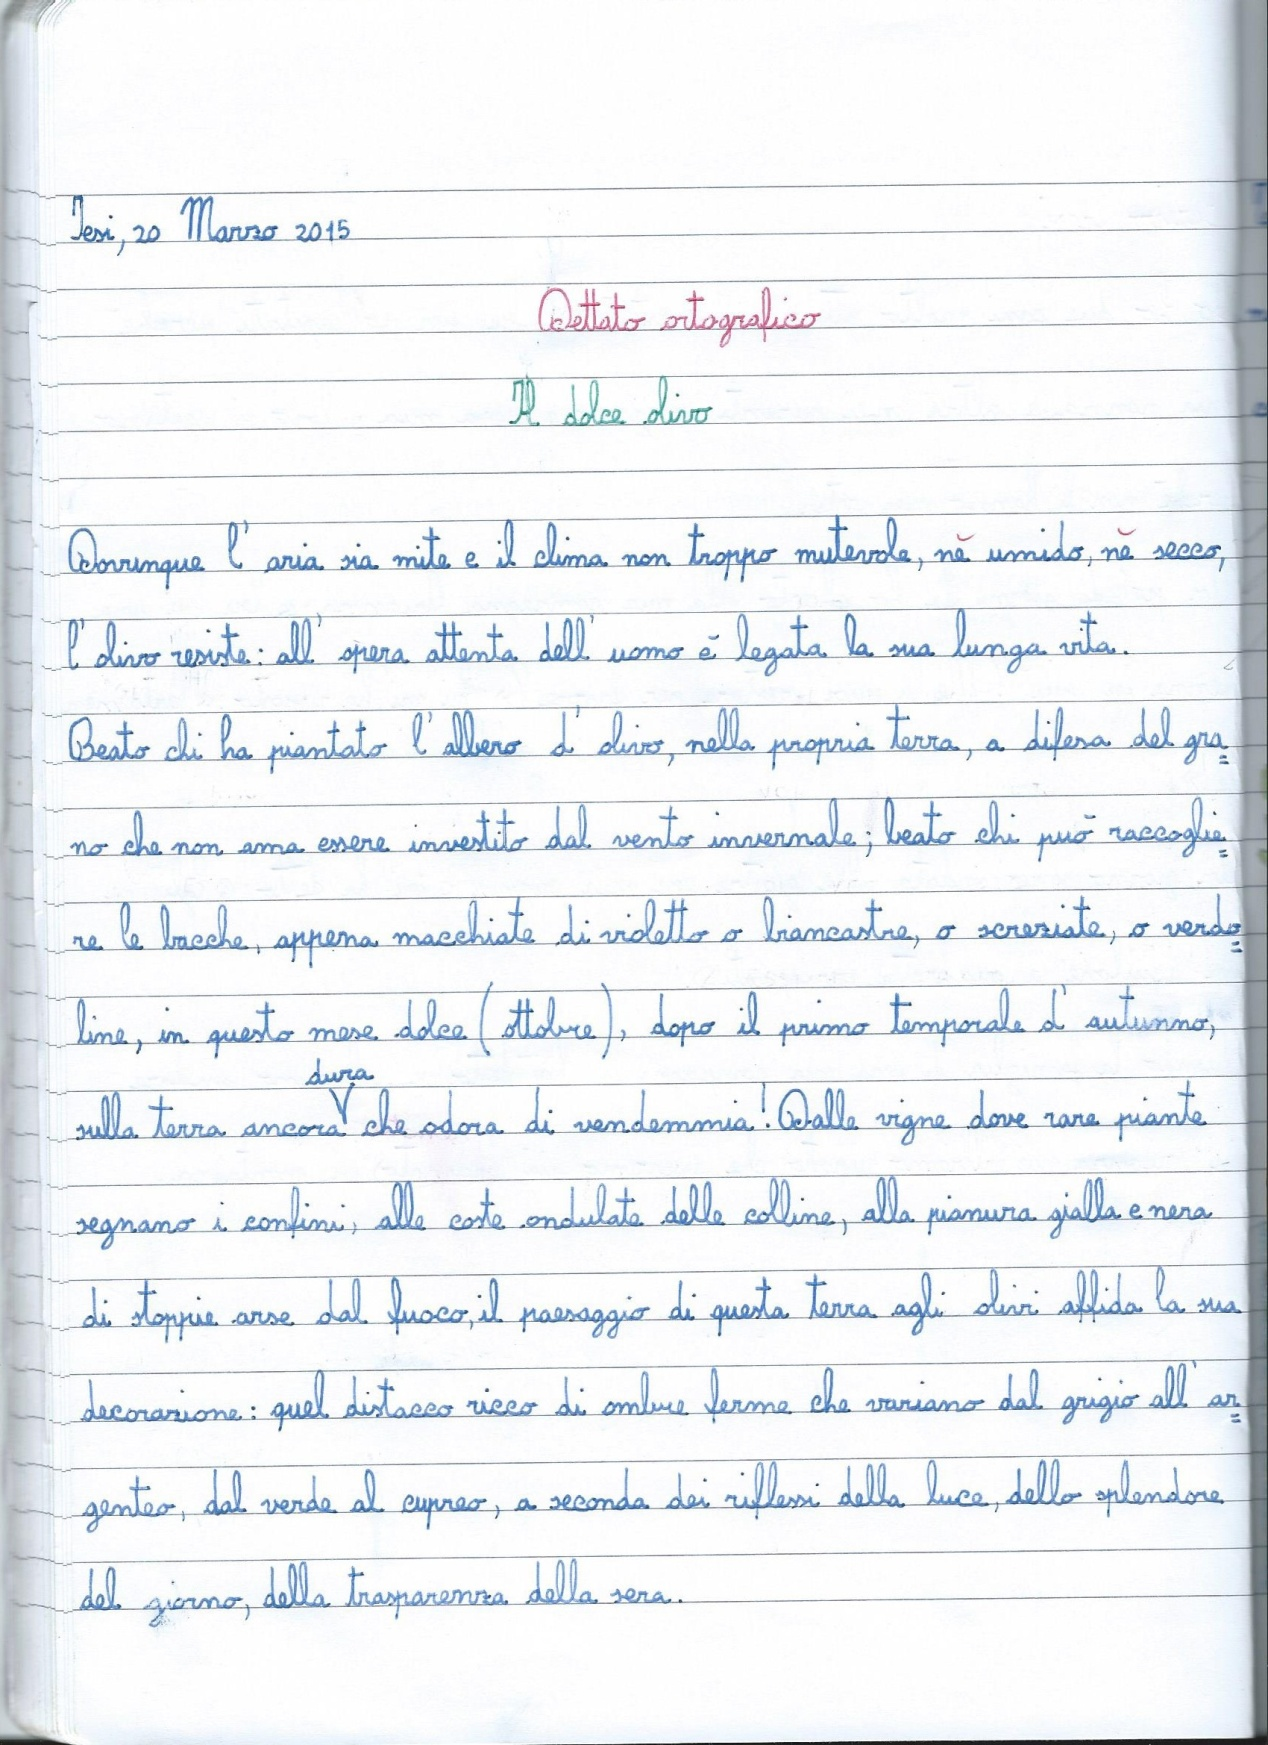 Jesi, 20 Marzo 2015
Dettato ortografico
Il dolce olivo
Dovunque l'aria sia mite e il clima non troppo mutevole, nè umido, nè secco,
l'olivo resiste: all'opera attenta dell'uomo è legata la sua lunga vita.
Beato chi ha piantato l'albero d'olivo, nella propria terra, a difesa del gra=
no che non ama essere investito dal vento invernale; beato chi può raccoglie=
re le bacche, appena macchiate di violetto o biancastre, o screziate, o verdo=
line, in questo mese dolce (ottobre), dopo il primo temporale d'autunno,
dura
sulla terra ancora V che odora di vendemmia! Dalle vigne dove rare piante
segnano i confini, alle coste ondulate delle colline, alla pianura gialla e nera
di stoppie arse dal fuoco, il paesaggio di questa terra agli olivi affida la sua
decorazione: quel distacco ricco di ombre ferme che variano dal grigio all'ar=
genteo, dal verde al cupreo, a seconda dei riflessi della luce, dello splendore
del giorno, della trasparenza della sera.